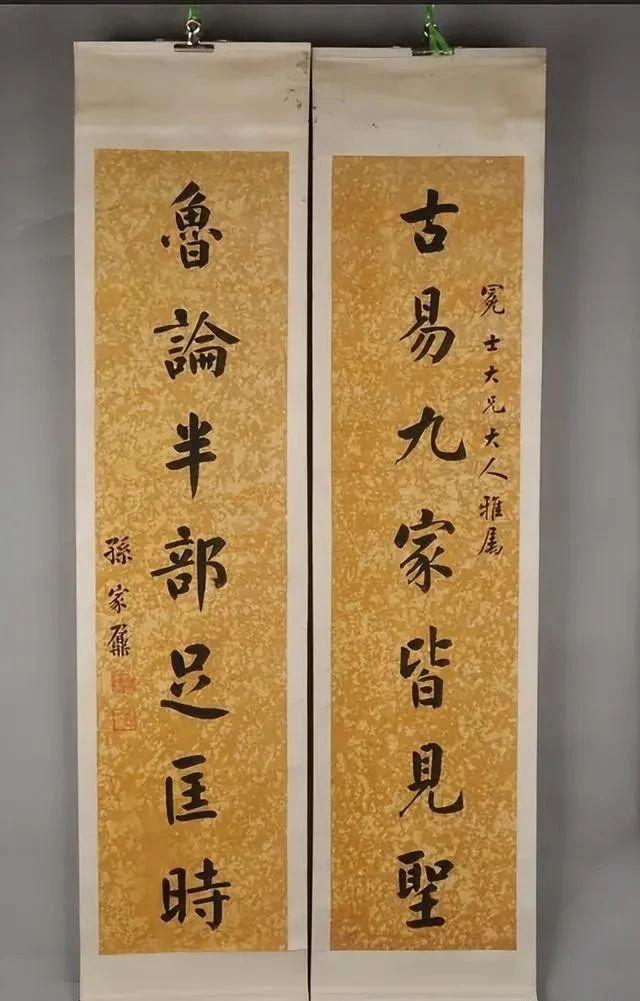 士大兄大人雅属
古易九家皆見聖
魯論半部足匡時
孫家鼐